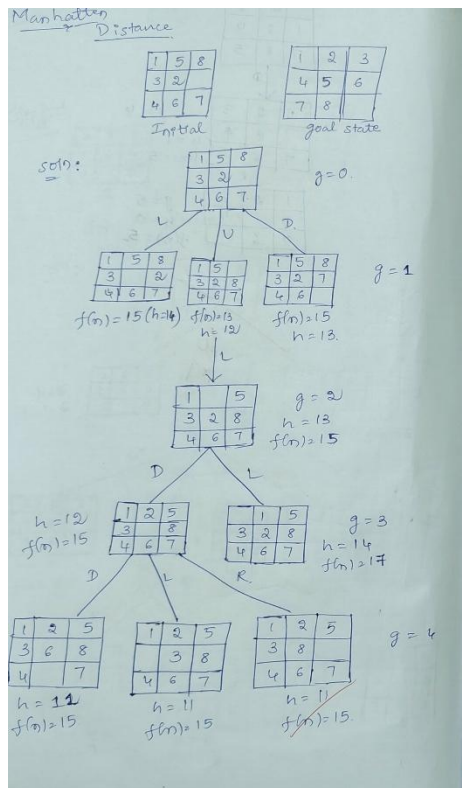 Manhatten
Distance
1 5 8
3 2
4 6 7
Initial
1 2 3
4 5 6
7 8
goal state
soln:
1 5 8
3 2
4 6 7
g=0.
L
U
D.
1 5 8
3 2
4 6 7
f(n)=15(h=14)
1 5
3 2 8
4 6 7
f(n)=13
h=12
1 5 8
3 2 7
4 6
f(n)=15
h=13.
g=1
L
1 5
3 2 8
4 6 7
g=2
h=13
f(n)=15
D
L
h=12
f(n)=15
1 2 5
3 8
4 6 7
1 5
3 2 8
4 6 7
g=3
h=14
f(n)=17
D
L
R.
1 2 5
3 6 8
4 7
h=11
f(n)=15
1 2 5
3 8
4 6 7
h=11
f(n)=15
1 2 5
3 8
4 6 7
h=11
f(n)=15.
g=4